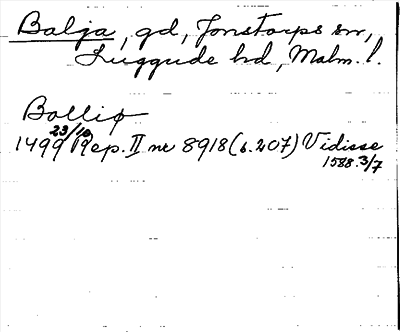 Balja, gd, Jonstorps sn,
Luggude hd, Malm. l.
Balliø
23/10
1499 Rep. II nr 8918 (s. 207) Vidisse
1588. 3/7